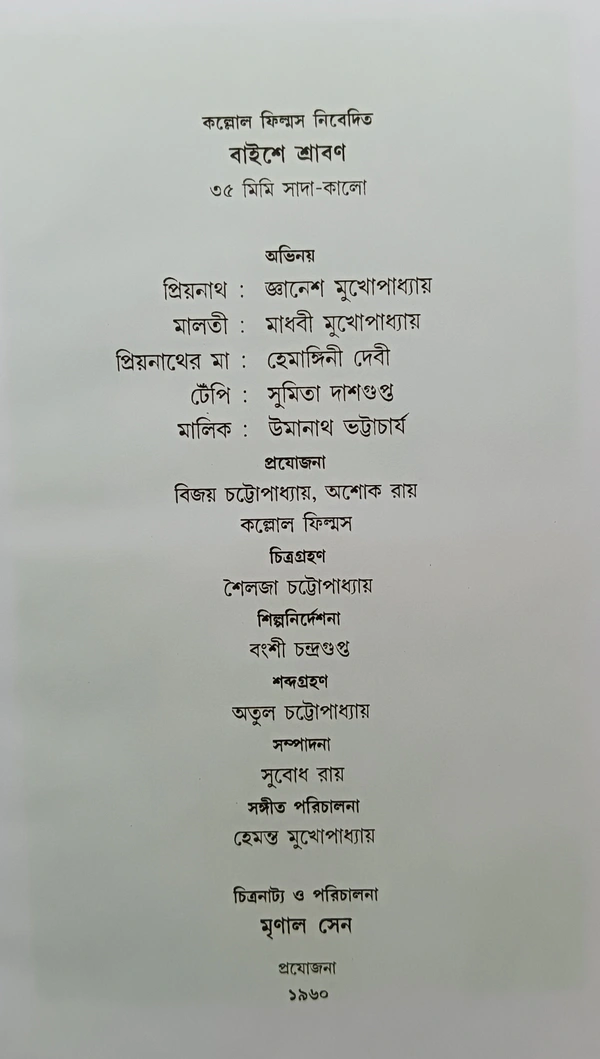 কল্লোল ফিল্মস নিবেদিত
বাইশে শ্রাবণ
৩৫ মিমি সাদা-কালো
অভিনয়
প্রিয়নাথ : জ্ঞানেশ মুখোপাধ্যায়
মালতী : মাধবী মুখোপাধ্যায়
প্রিয়নাথের মা : হেমাঙ্গিনী দেবী
টেঁপি : সুমিতা দাশগুপ্ত
মালিক : উমানাথ ভট্টাচার্য
প্রযোজনা
বিজয় চট্টোপাধ্যায়, অশোক রায়
কল্লোল ফিল্মস
চিত্রগ্রহণ
শৈলজা চট্টোপাধ্যায়
শিল্পনির্দেশনা
বংশী চন্দ্রগুপ্ত
শব্দগ্রহণ
অতুল চট্টোপাধ্যায়
সম্পাদনা
সুবোধ রায়
সঙ্গীত পরিচালনা
হেমন্ত মুখোপাধ্যায়
চিত্রনাট্য ও পরিচালনা
মৃণাল সেন
প্রযোজনা
১৯৬০